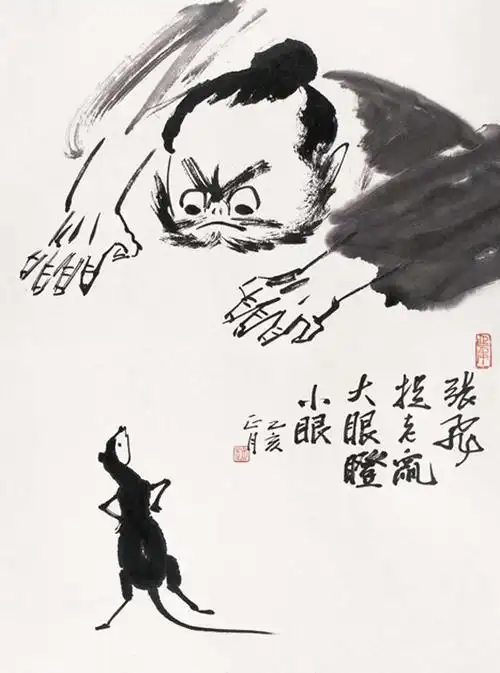 张飛
捉老鼠
大眼瞪
小眼
乙亥
正月